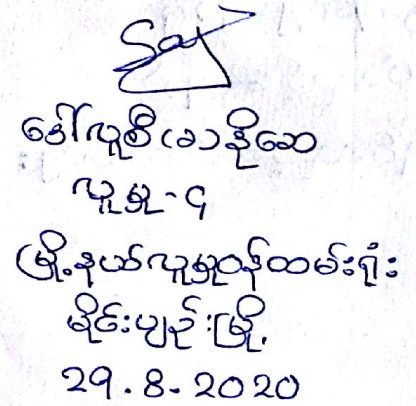 ဒေါ်လူစီ(ခ)နိုဆေ
လူမှု-၄
မြို့နယ်လူမှုဝန်ထမ်းရုံး
မိုင်းပျဉ်းမြို့
29.8.2020